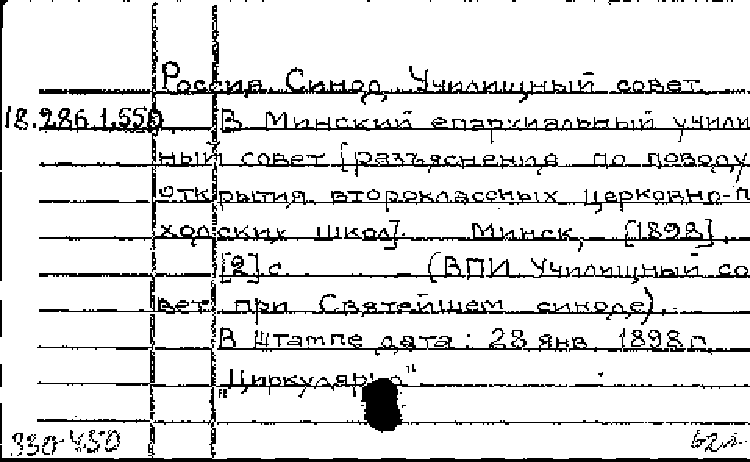 Россия. Синод. Училищный совет.
18.286.1.550. В Минский епархиальный учили
ный совет [разъяснения по поводу
открытия второклассных церковно-п
ходских школ]. Минск, [1898].
[2] с. – (ВПИ Училищный со
вет при Святейшем синоде).
В штампе дата: 28 янв. 1898 г.
"Циркулярно"
330-450